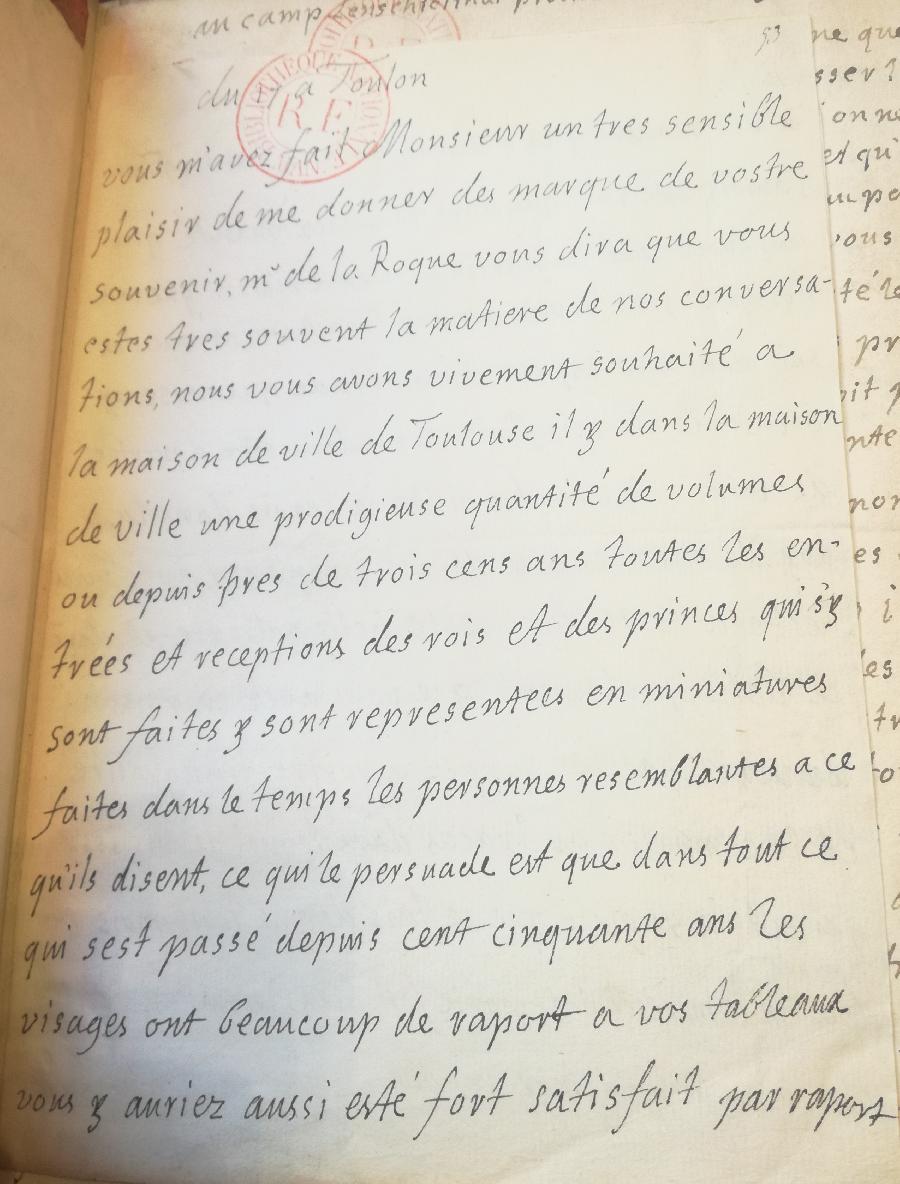 au camp
53
du 17 a Toulon
BIBLIOTHEQUE NATIONALE
R F
MAN.
vous m'avez fait Monsieur un tres sensible
plaisir de me donner des marque de vostre
souvenir, mr de la Roque vous dira que vous
estes tres souvent la matiere de nos conversa-
tions, nous vous avons vivement souhaité a
la maison de ville de Toulouse il y dans la maison
de ville une prodigieuse quantité de volumes
ou depuis pres de trois cens ans toutes les en-
trées et receptions des rois et des princes qui s'y
sont faites y sont representees en miniatures
faites dans le temps les personnes resemblantes a ce
qu'ils disent, ce qui le persuade est que dans tout ce
qui sest passé depuis cent cinquante ans les
visages ont beaucoup de raport a vos tableaux
vous y auriez aussi esté fort satisfait par raport